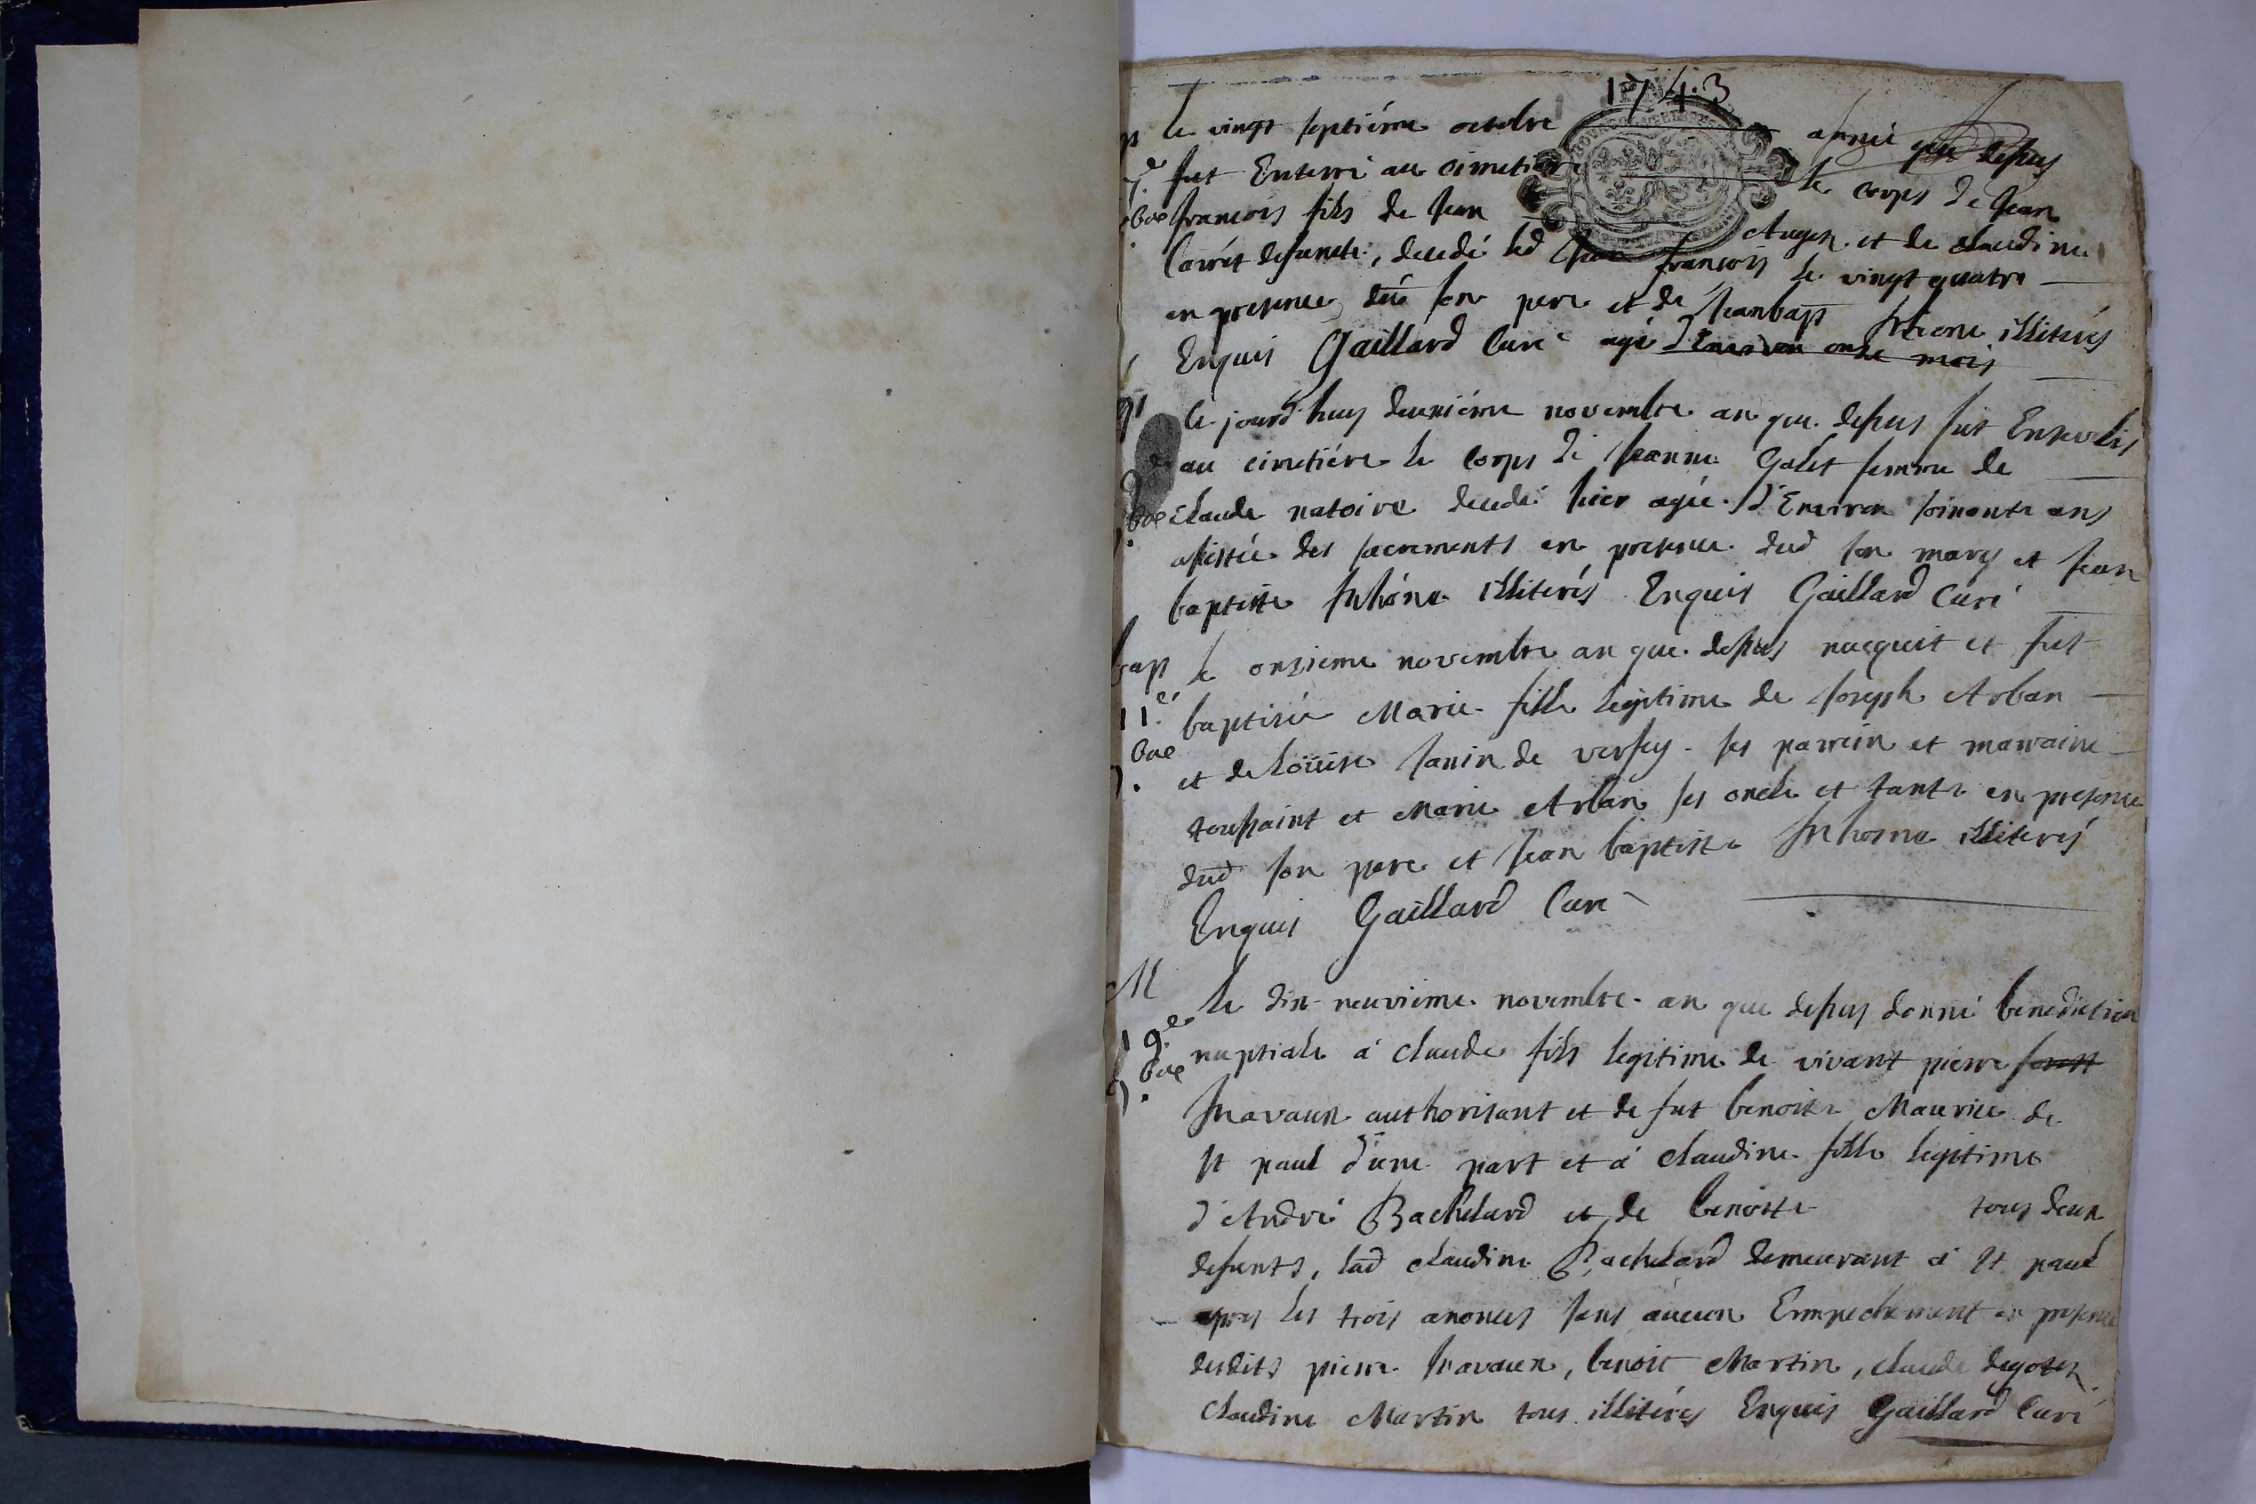 1743
le vingt septiéme octobre année que dessus
fut Enterré au cimetiere le corps de Jean
françois fils de Jean et de claudine
defuncte, decedé led Jean françois le vingt quatre
en presence dud son pere et de Jean bap illiterés
Enquis Gaillard Curé agé d'Environ onze mois
le jourd'huy deuxiéme novembre an que dessus fut Ensevelis
au cimetiére le corps de Jeanne Galet femme de
claude natoire decedé hier agée d'Environ soixante ans
assistée des sacrements en presence dud son mary et Jean
baptiste illiterés Enquis Gaillard Curé
bap le onzieme novembre an que dessus nacquit et fut
11.e baptisée Marie fille legitime de Joseph Arban
9bre et de Loüise Janin de versey ses parrein et marraine
toussaint et Marie Arban ses oncle et tante en presence
dud son pere et Jean baptiste illiterés
Enquis Gaillard Curé
M le dix neuviéme novembre an que dessus donné benediction
19.e nuptiale á claude fils legitime de vivant pierre
9bre authorisant et de fut benoite Maurice de
St paul d'une part et á claudine fille legitime
d'André Bachelard et de benoite tous deux
defunts, lad claudine Bachelard demeurant á St paul
apres les trois anonces sans aucun Emmpechement en presence
desdits pierre, benoit Martin, claude
claudine Martin tous illiterés Enquis Gaillard Curé